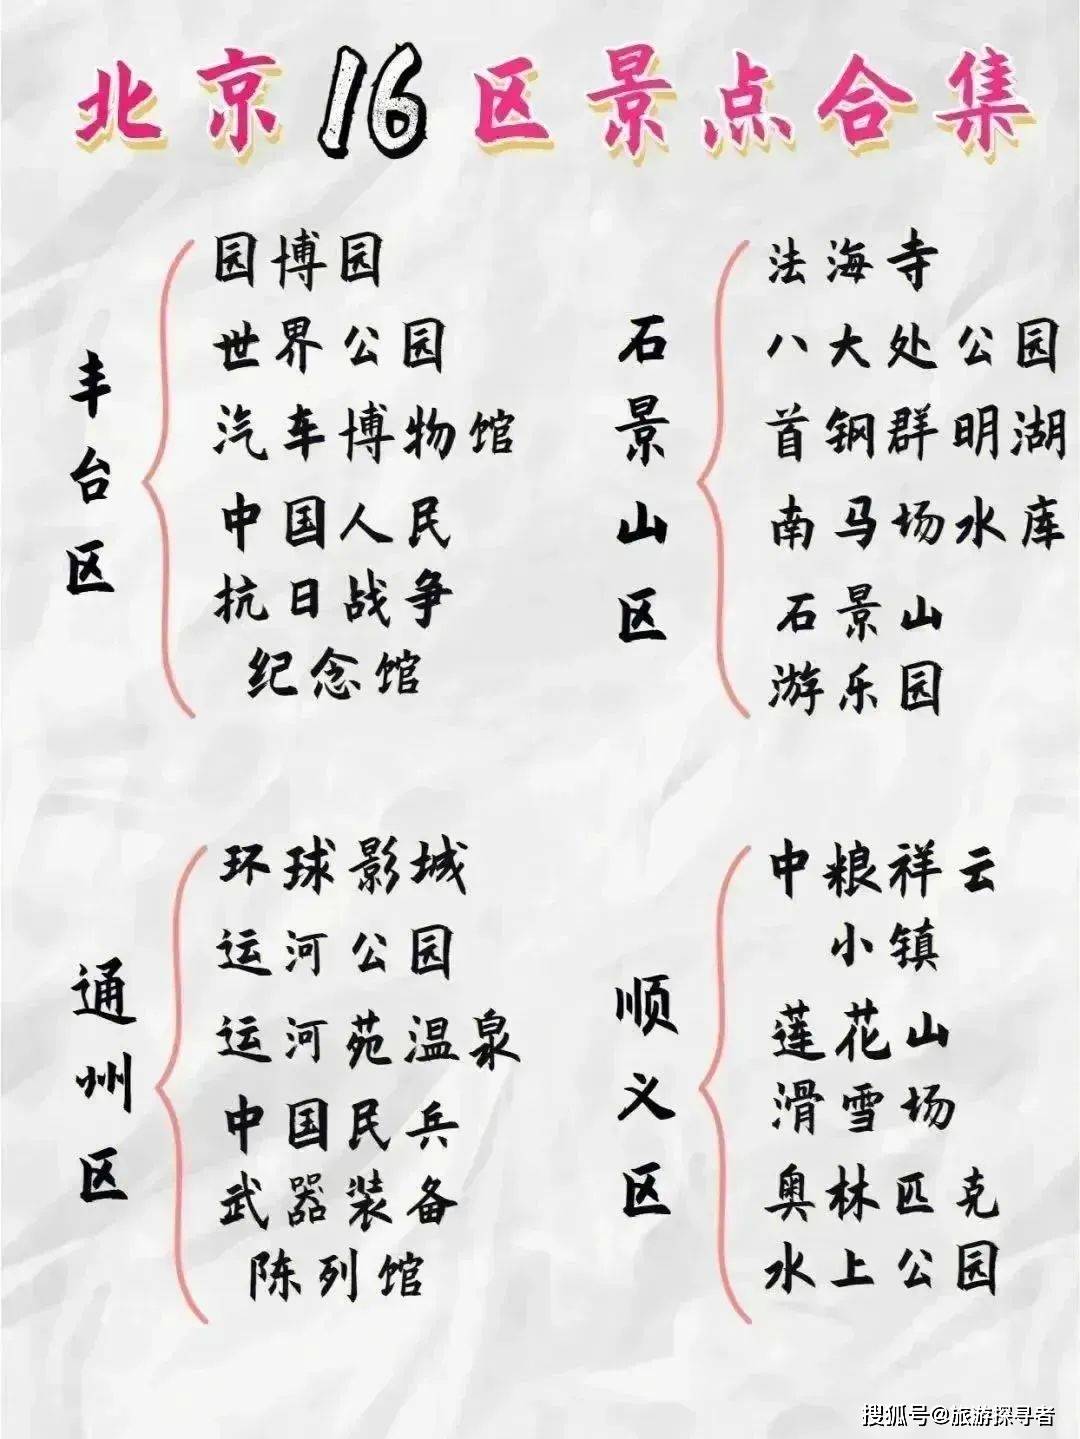 北京16区景点合集
丰台区
园博园
世界公园
汽车博物馆
中国人民
抗日战争
纪念馆
石景山区
法海寺
八大处公园
首钢群明湖
南马场水库
石景山
游乐园
通州区
环球影城
运河公园
运河苑温泉
中国民兵
武器装备
陈列馆
顺义区
中粮祥云
小镇
莲花山
滑雪场
奥林匹克
水上公园
搜狐号@旅游探寻者